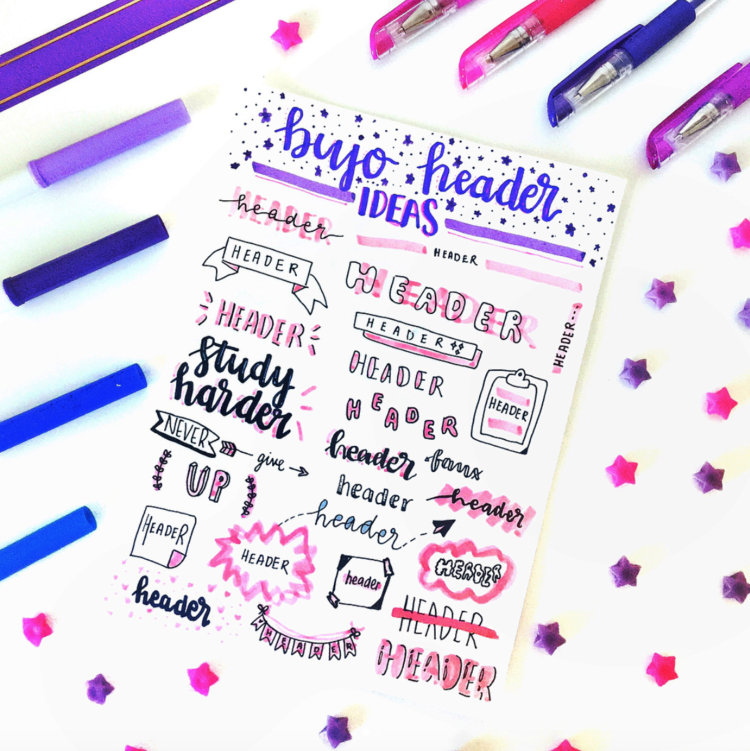 bujo header
IDEAS
header
HEADER
HEADER
HEADER
HEADER
HEADER
HEADER
HEADER
HEADER
HEADER...
study
harder
HEADER
HEADER
NEVER
give
UP
header
faux
header
header
header
HEADER
HEADER
header
HEADER
header
HEADER
HEADER
HEADER